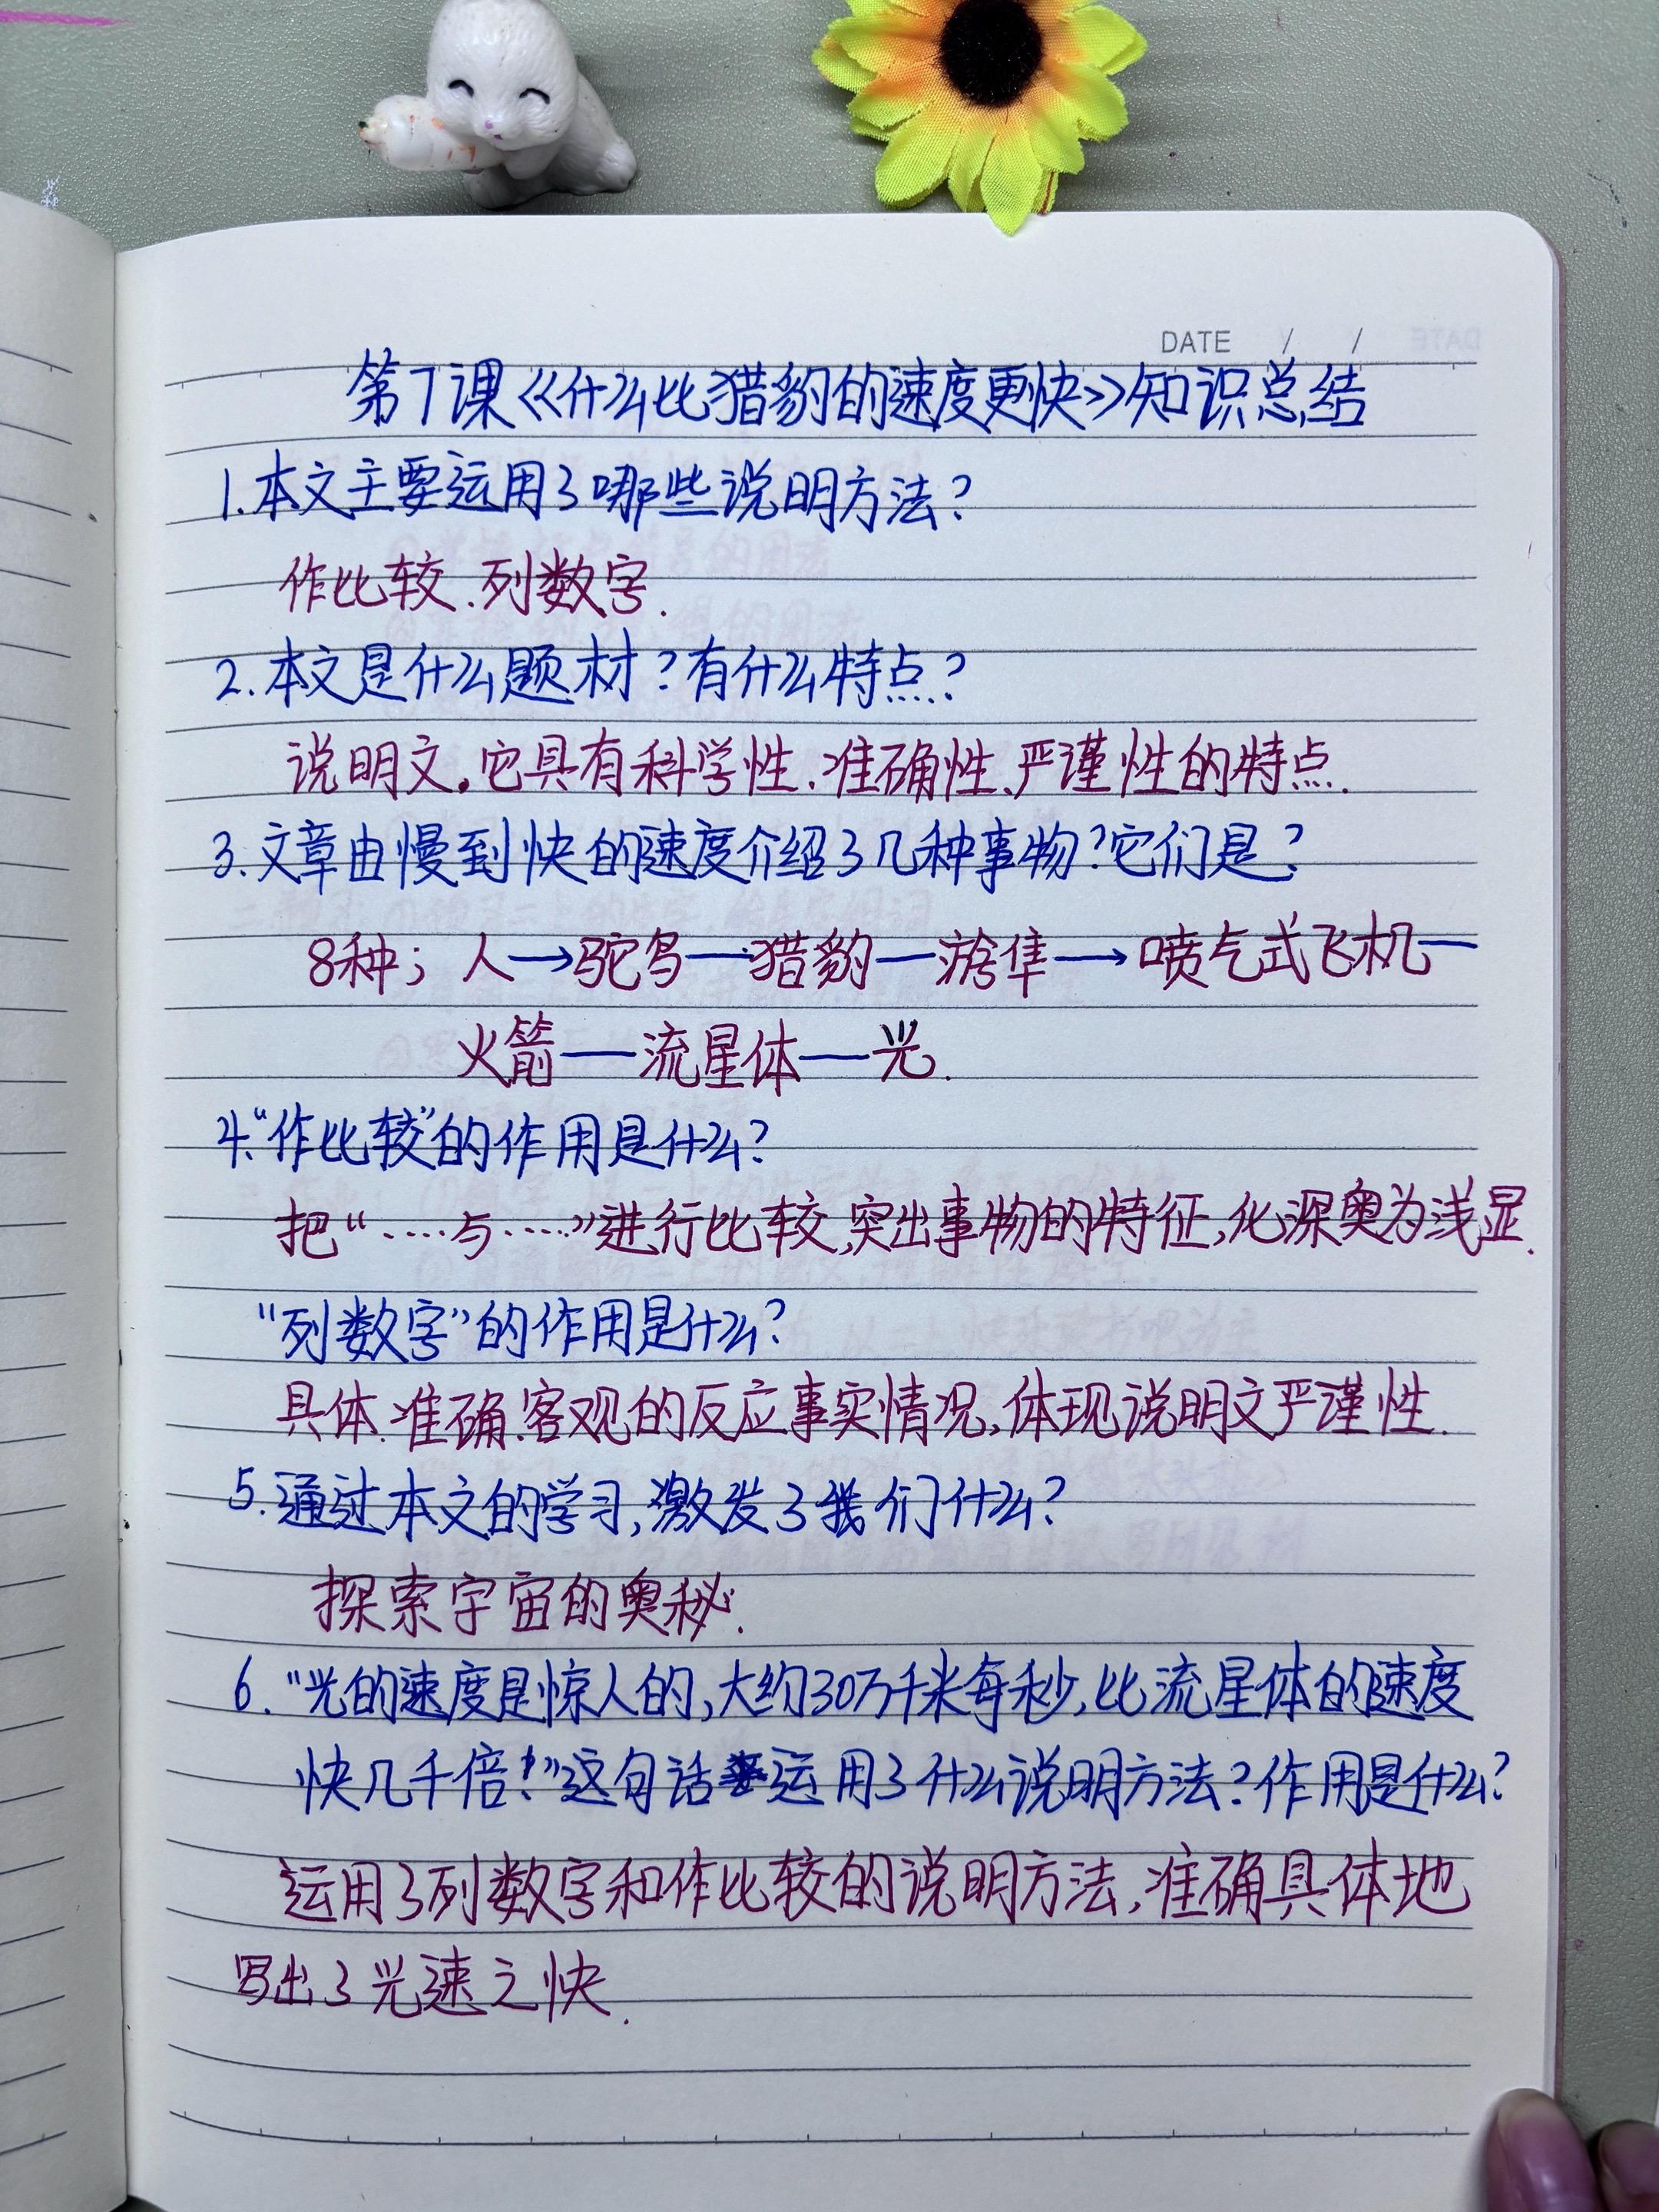 DATE / /
第7课《什么比猎豹的速度更快》知识总结
1.本文主要运用了哪些说明方法?
作比较.列数字.
2.本文是什么题材?有什么特点?
说明文。它具有科学性、准确性、严谨性的特点.
3.文章由慢到快的速度介绍了几种事物?它们是?
8种; 人→鸵鸟—猎豹—游隼→喷气式飞机—
火箭—流星体—光.
4."作比较"的作用是什么?
把"……与……"进行比较,突出事物的特征,化深奥为浅显.
"列数字"的作用是什么?
具体.准确.客观的反应事实情况,体现说明文严谨性.
5.通过本文的学习,激发了我们什么?
探索宇宙的奥秘.
6."光的速度是惊人的,大约30万千米每秒,比流星体的速度
快几千倍!"这句话运用了什么说明方法?作用是什么?
运用了列数字和作比较的说明方法,准确具体地
写出了光速之快.